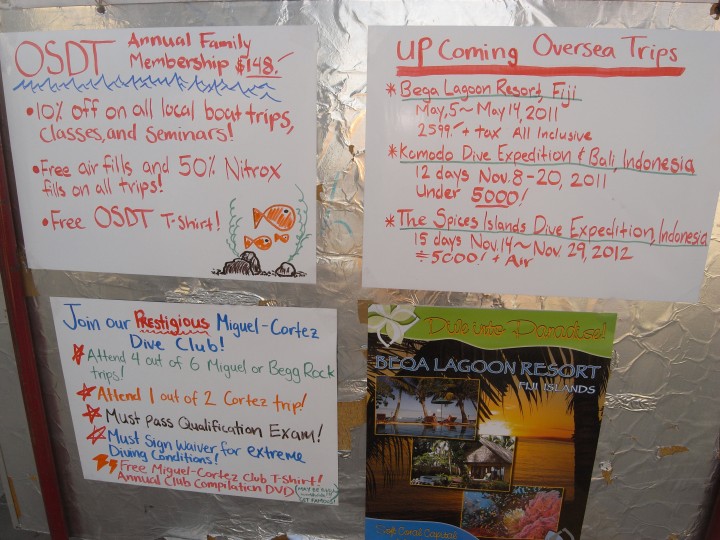 OSDT Annual Family
Membership $148.
•10% off on all local boat trips,
classes, and seminars!
•Free air fills and 50% Nitrox
fills on all trips!
•Free OSDT T-Shirt!
UP Coming Oversea Trips
*Beqa Lagoon Resort, Fiji
May, 5~May 14, 2011
2599 + tax All Inclusive
*Komodo Dive Expedition & Bali, Indonesia
12 days Nov. 8-20, 2011
Under 5000!
*The Spices Islands Dive Expedition, Indonesia
15 days Nov. 14~Nov. 29, 2012
5000! + Air
Join our Prestigious Miguel-Cortez
Dive Club!
Attend 4 out of 6 Miguel or Begg Rock
trips!
Attend 1 out of 2 Cortez trip!
Must Pass Qualification Exam!
Must Sign Waiver for extreme
Diving Conditions!
Free Miguel-Cortez Club T-Shirt!
Annual Club Compilation DVD
Dive into Paradise!
BEQA LAGOON RESORT
FIJI ISLANDS
Soft Coral Capital